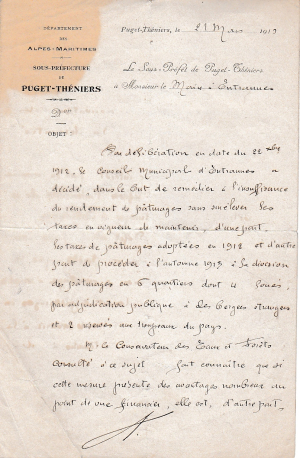 DÉPARTEMENT
DES
ALPES-MARITIMES
SOUS-PRÉFECTURE
DE
PUGET-THÉNIERS
OBJET :
Puget-Théniers, le 21 Mars 1913
Le Sous-Préfet de Puget-Théniers
à Monsieur le Maire d'Entraunes
Par délibération en date du 22 xbre
1912, le Conseil Municipal d'Entraunes a
décidé, dans le but de remédier à l'insuffisance
du rendement de pâturages sans élever les
taxes en vigueur de maintenir, d'une part,
les taxes de pâturages adoptées en 1912 et d'autre
part de procéder à l'automne 1913 à la division
des pâturages en 6 quartiers dont 4 loués,
par adjudication publique à des bergers étrangers
et 2 réservés aux troupeaux du pays.
M. le Conservateur des Eaux et Forêts
consulté à ce sujet fait connaître que si
cette mesure présente des avantages nombreux au
point de vue financier, elle est, d'autre part.